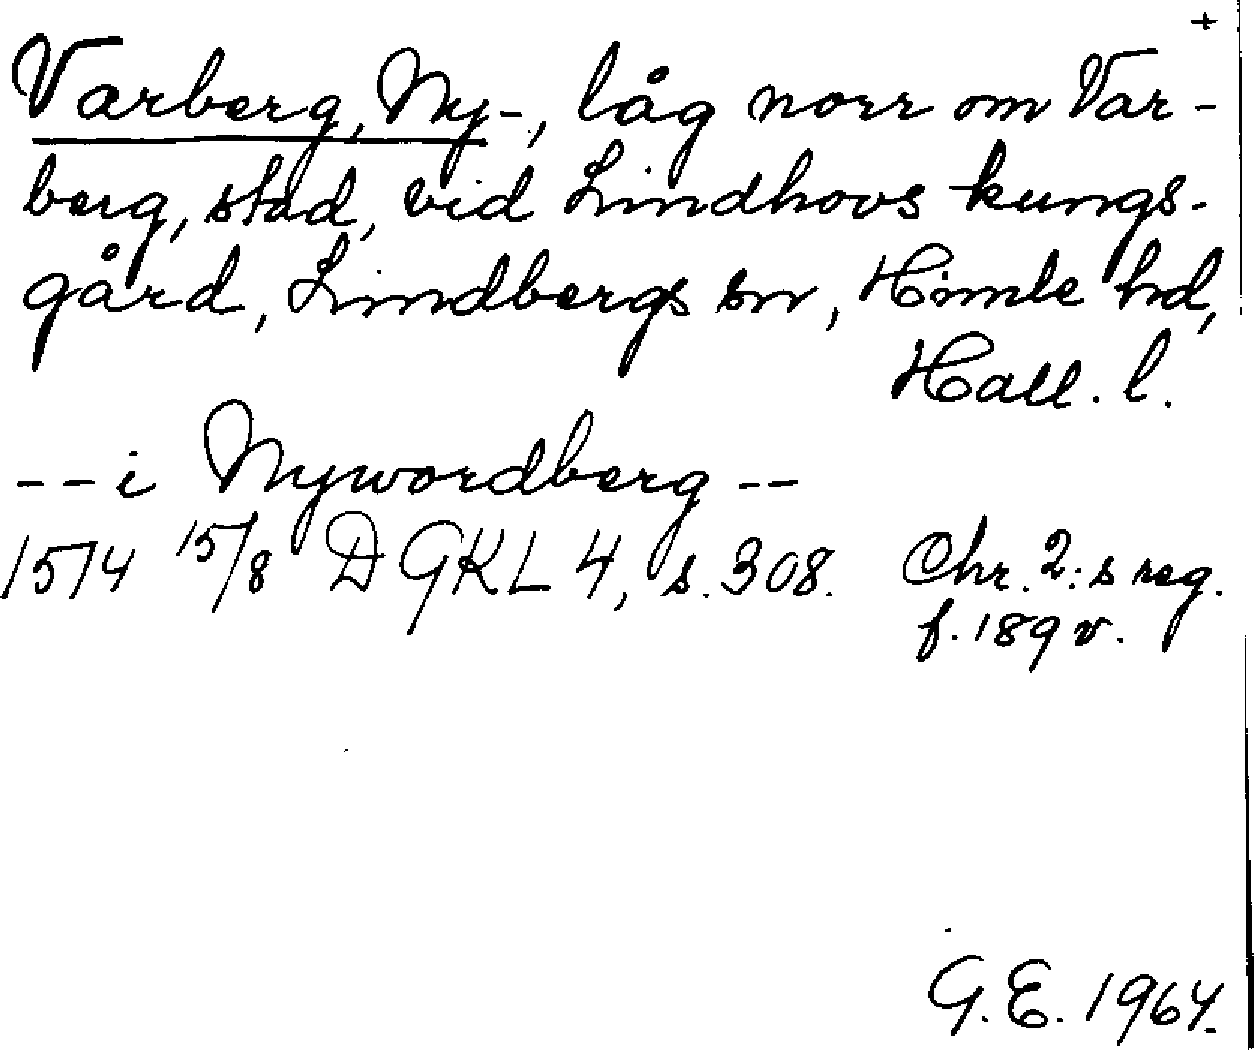 +
Varberg, Ny-, låg norr om Var-
berg, stad, vid Lindhovs kungs-
gård, Lindbergs sn, Himle hd,
Hall. l.
-- i Nywordberg --
1574 15/8 DGKL 4, s. 308. Chr. 2:s reg.
f. 189 v.
G. E. 1964.